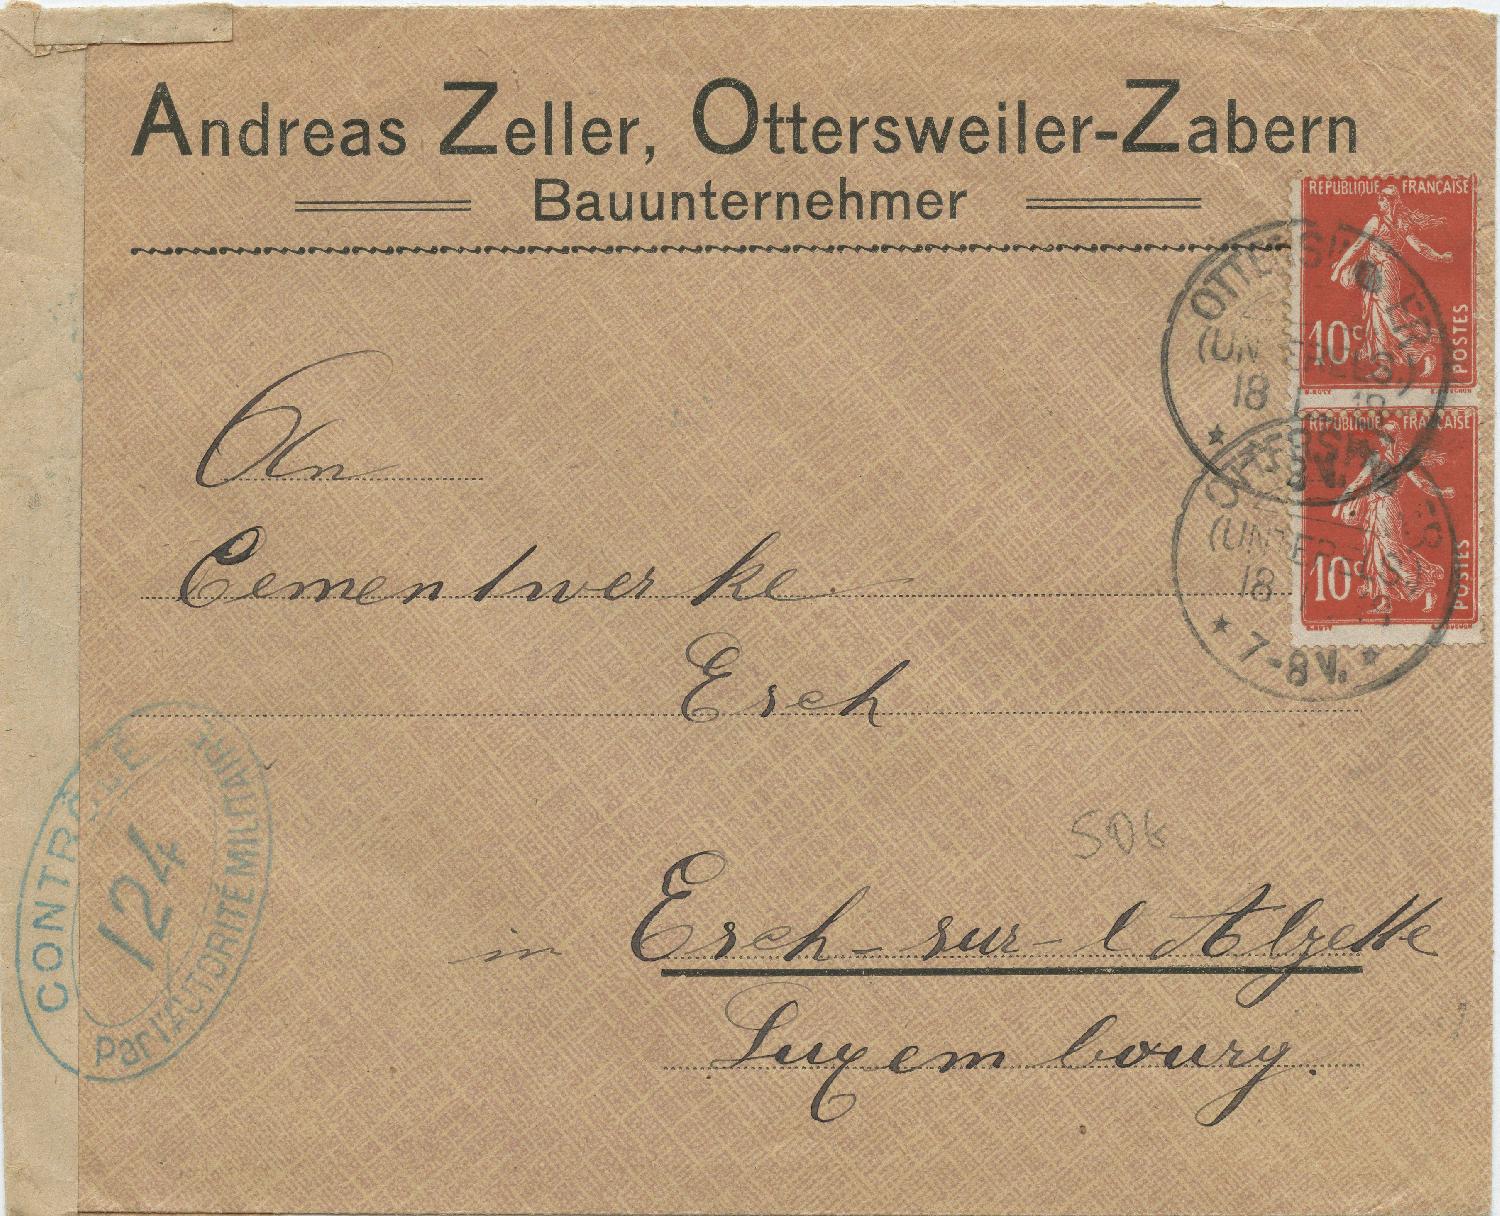 Andreas Zeller, Ottersweiler-Zabern
Bauunternehmer
REPUBLIQUE FRANÇAISE
10c
POSTES
REPUBLIQUE FRANÇAISE
10c
POSTES
18
18
7-8V.
An
Cementwerke
Esch
50k
in Esch-sur-l Alzette
Luxembourg.
CONTRÔLE
124
Par l'AUTORITÉ MILITAIRE